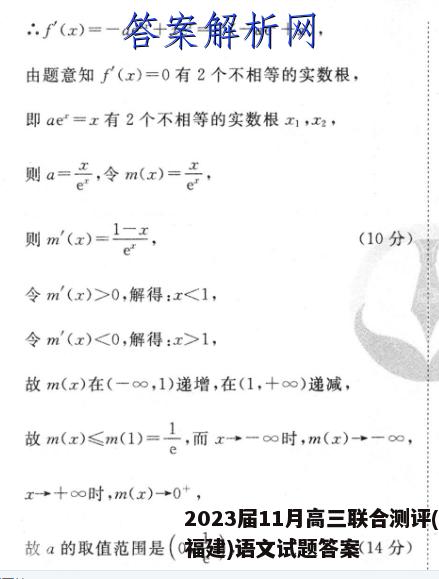 ∴f′(x)=-
答案解析网
由题意知 f′(x)=0 有 2 个不相等的实数根，
即 aeˣ=x 有 2 个不相等的实数根 x₁，x₂，
则 a=x/eˣ，令 m(x)=x/eˣ，
则 m′(x)=(1-x)/eˣ， (10 分)
令 m′(x)>0，解得：x<1，
令 m′(x)<0，解得：x>1，
故 m(x)在(-∞,1)递增，在(1,+∞)递减，
故 m(x)≤m(1)=1/e，而 x→-∞时，m(x)→-∞，
x→+∞时，m(x)→0⁺，
2023届11月高三联合测评(
福建)语文试题答案
故 a 的取值范围是(0 (14 分)